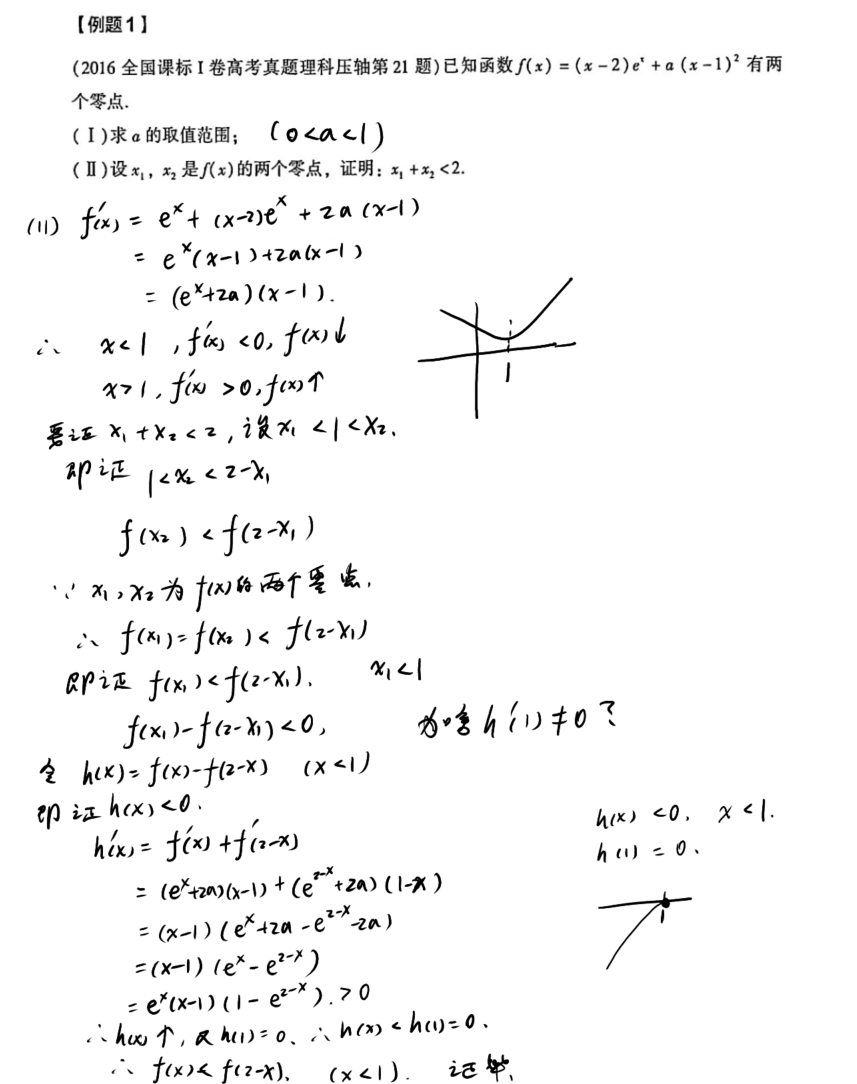 【例题1】
(2016全国课标I卷高考真题理科压轴第21题)已知函数f(x)=(x-2)eˣ+a(x-1)²有两
个零点.
(Ⅰ)求a的取值范围; (0<a<1)
(Ⅱ)设x₁,x₂是f(x)的两个零点,证明:x₁+x₂<2.
(11) f'(x) = eˣ+(x-2)eˣ+2a(x-1)
= eˣ(x-1)+2a(x-1)
= (eˣ+2a)(x-1).
∴ x<1, f'(x)<0, f(x)↓
x>1, f'(x)>0, f(x)↑
1
要证 x₁+x₂<2, 设x₁<1<x₂.
即证 1<x₂<2-x₁
f(x₂)<f(2-x₁)
∵ x₁,x₂为f(x)的两个零点,
∴ f(x₁)=f(x₂)<f(2-x₁)
即证 f(x₁)<f(2-x₁). x₁<1
f(x₁)-f(2-x₁)<0, 为啥h'(1)≠0?
令 h(x)=f(x)-f(2-x) (x<1)
即证 h(x)<0. h(x)<0, x<1.
h'(x)=f'(x)+f'(2-x) h(1)=0.
=(eˣ+2a)(x-1)+(e²⁻ˣ+2a)(1-x)
=(x-1)(eˣ+2a-e²⁻ˣ-2a) 1
=(x-1)(eˣ-e²⁻ˣ)
=eˣ(x-1)(1-e²⁻ˣ).>0
∴ h(x)↑, 又h(1)=0, ∴ h(x)<h(1)=0.
∴ f(x)<f(2-x), (x<1). 证毕.